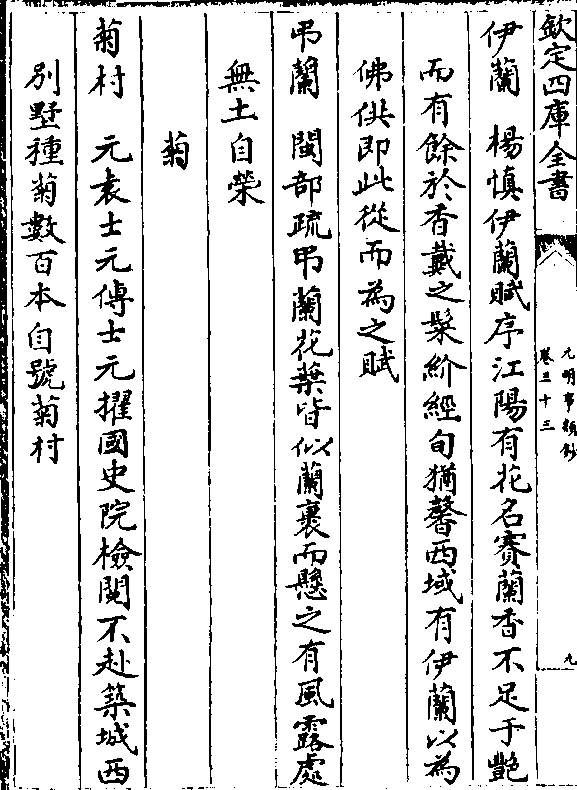 欽定四庫全書
元明事類鈔
卷三十三
九
伊蘭　楊慎伊蘭賦序江陽有花名賽蘭香不足于艷
而有餘於香戴之髮紒經旬猶馨西域有伊蘭以為
佛供即此從而為之賦
弔蘭　閩部疏弔蘭花葉皆似蘭裹而懸之有風露處
無土自榮
菊
菊村　元袁士元傳士元擢國史院檢閱不赴築城西
別墅種菊數百本自號菊村